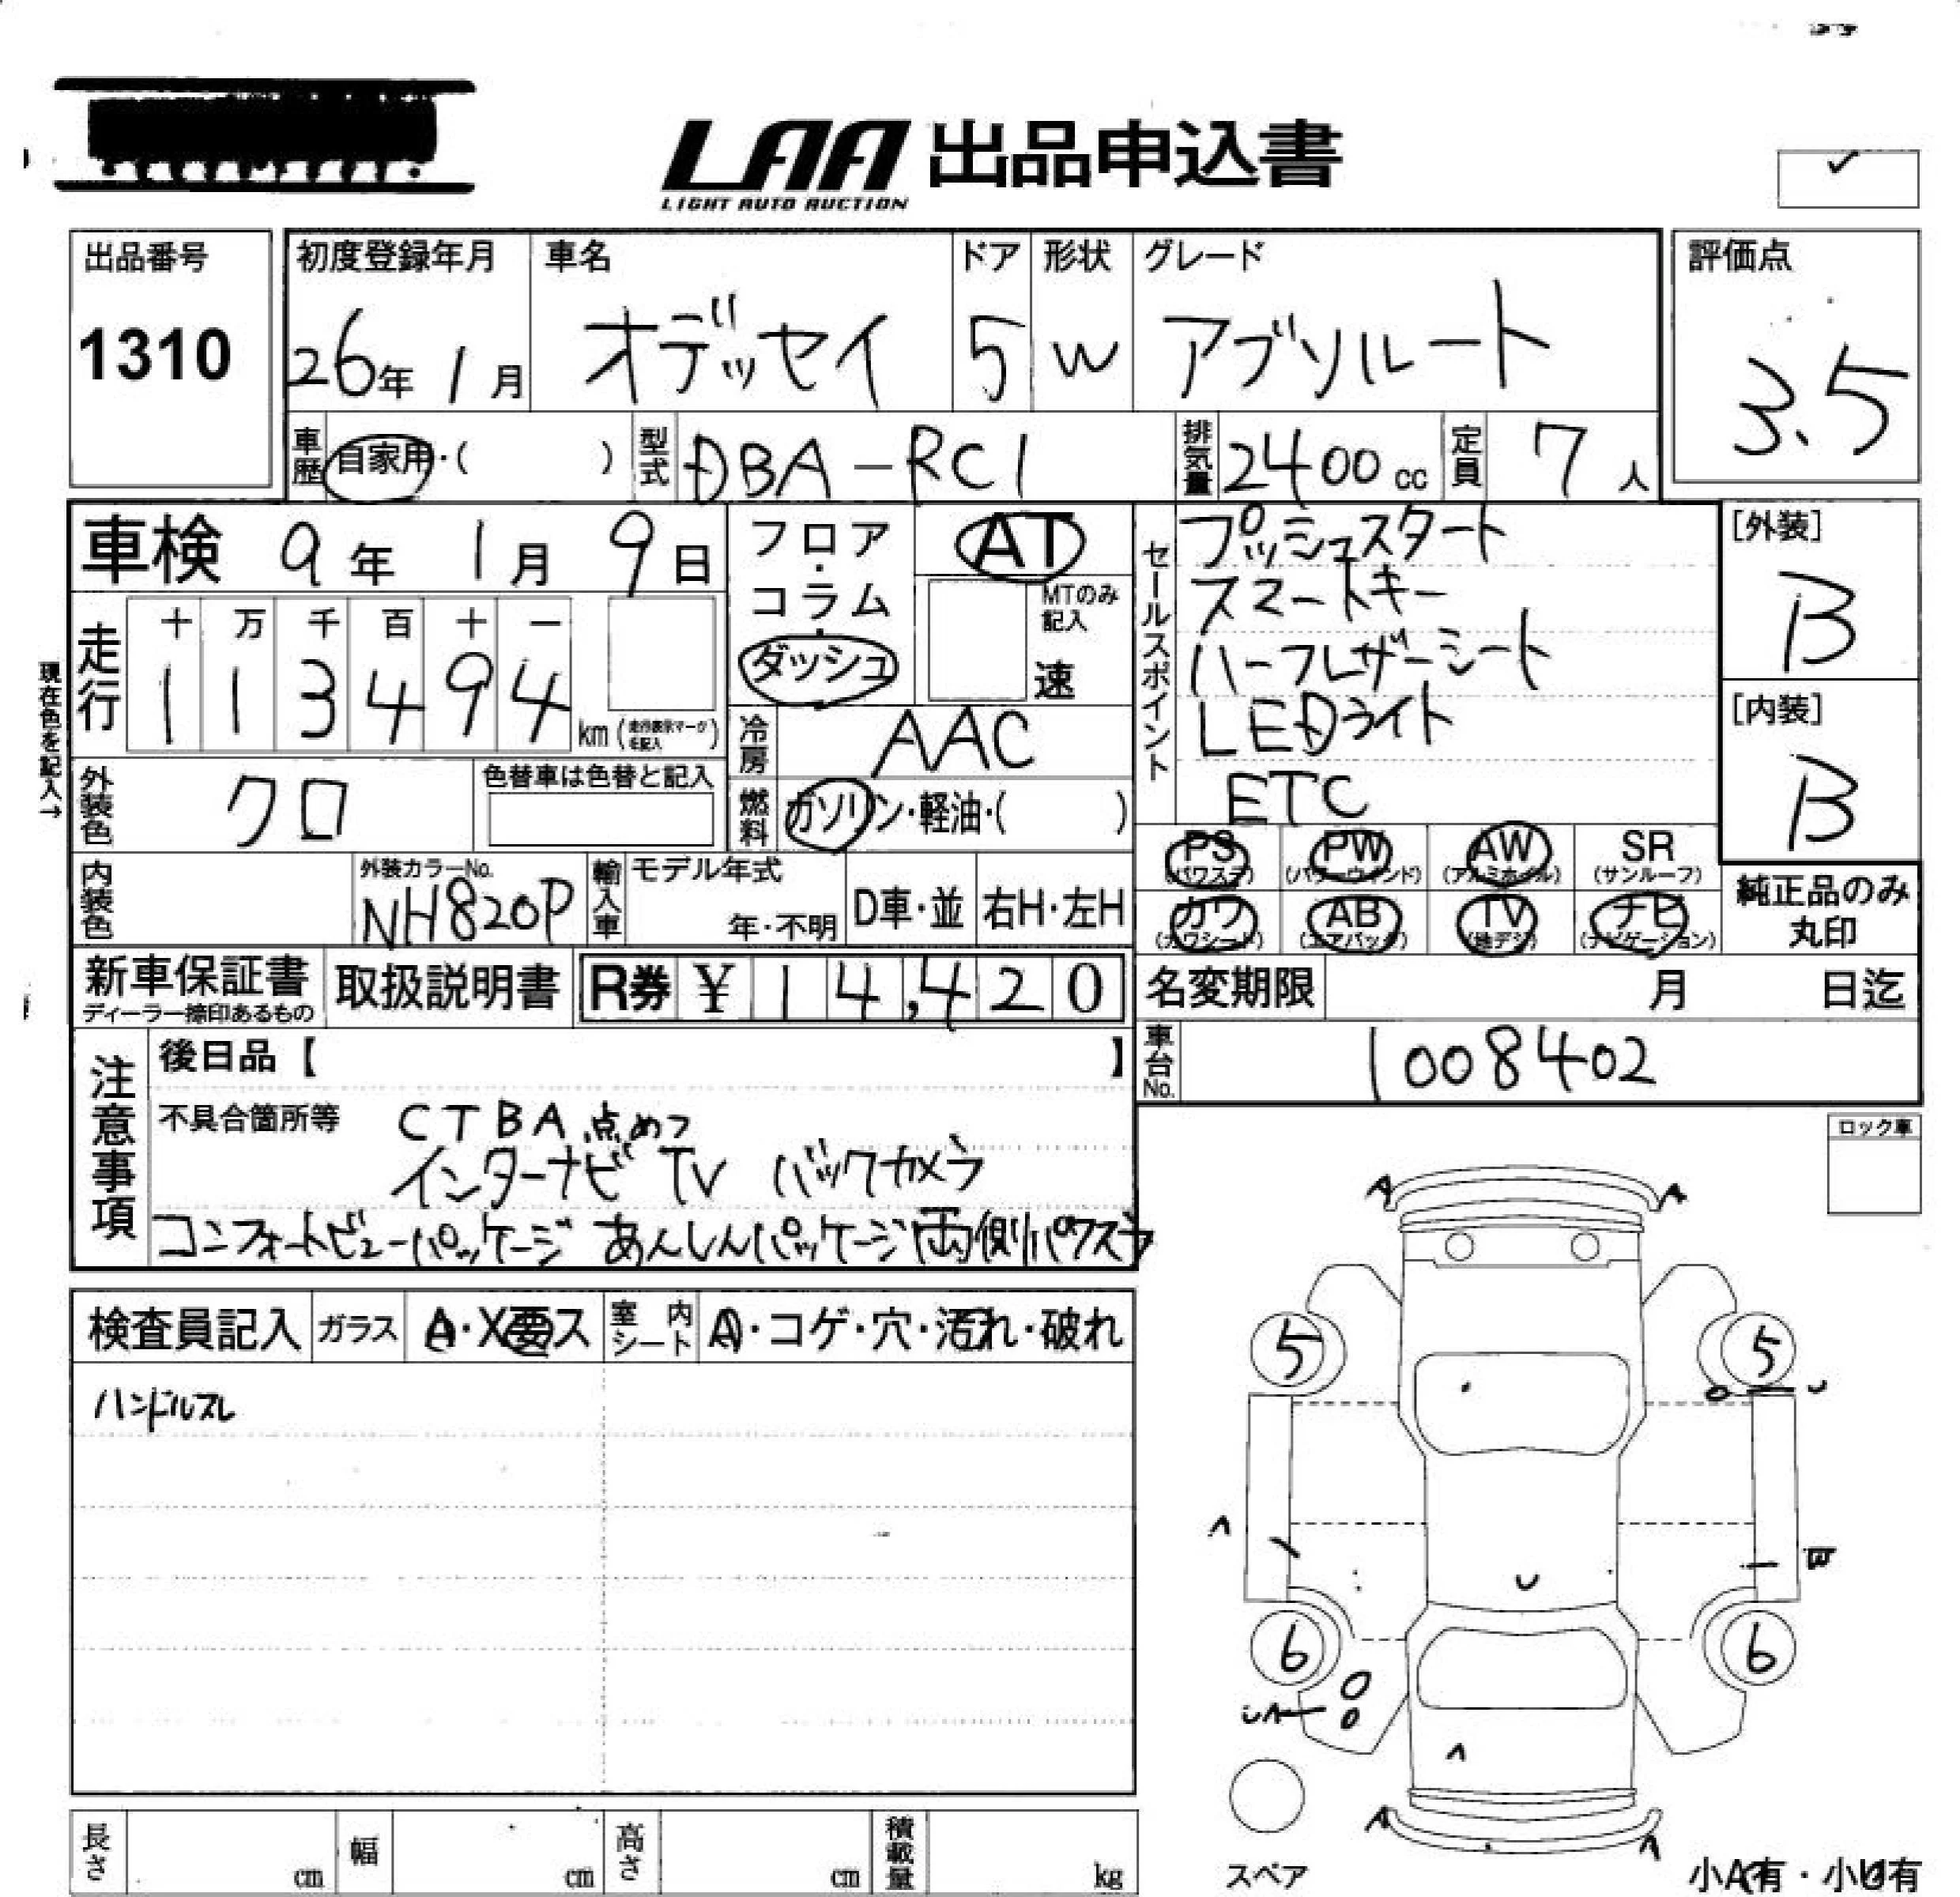 LAA 出品申込書
LIGHT AUTO AUCTION
出品番号
1310
初度登録年月
26年 1月
車名
オデッセイ
ドア
5
形状
W
グレード
アブソルート
評価点
3.5
車歴 自家用・( )
型式 DBA-RC1
排気量 2400 cc
定員 7 人
車検 9年 1月 9日
フロア・コラム・ダッシュ
AT
MTのみ記入
速
セールスポイント
プッシュスタート
スマートキー
ハーフレザーシート
LEDライト
ETC
[外装]
B
[内装]
B
現在色を記入→
走行
十 万 千 百 十 一
1 1 3 4 9 4 km
冷房 AAC
燃料 ガソリン・軽油・( )
外装色 クロ
色替車は色替と記入
内装色
外装カラーNo.
NH820P
輸入車
モデル年式
年・不明
D車・並
右H・左H
PS (パワステ)
PW (パワーウィンド)
AW (アルミホイル)
SR (サンルーフ)
カワ (カワシート)
AB (エアバッグ)
TV (地デジ)
ナビ (ナビゲーション)
純正品のみ
丸印
新車保証書
ディーラー捺印あるもの
取扱説明書
R券 ¥ 14,420
名変期限 月 日迄
車台No. 1008402
注意事項
後日品【 】
不具合箇所等 CTBA 点めつ
インターナビ TV バックカメラ
コンフォートビューパッケージ あんしんパッケージ 両側パワスラ
ロック車
検査員記入
ガラス A・X要ス
室内シート A・コゲ・穴・汚れ・破れ
ハンドルスレ
A A
5 5
6 6
A
スペア
小A有・小U有
長さ cm
幅 cm
高さ cm
積載量 kg